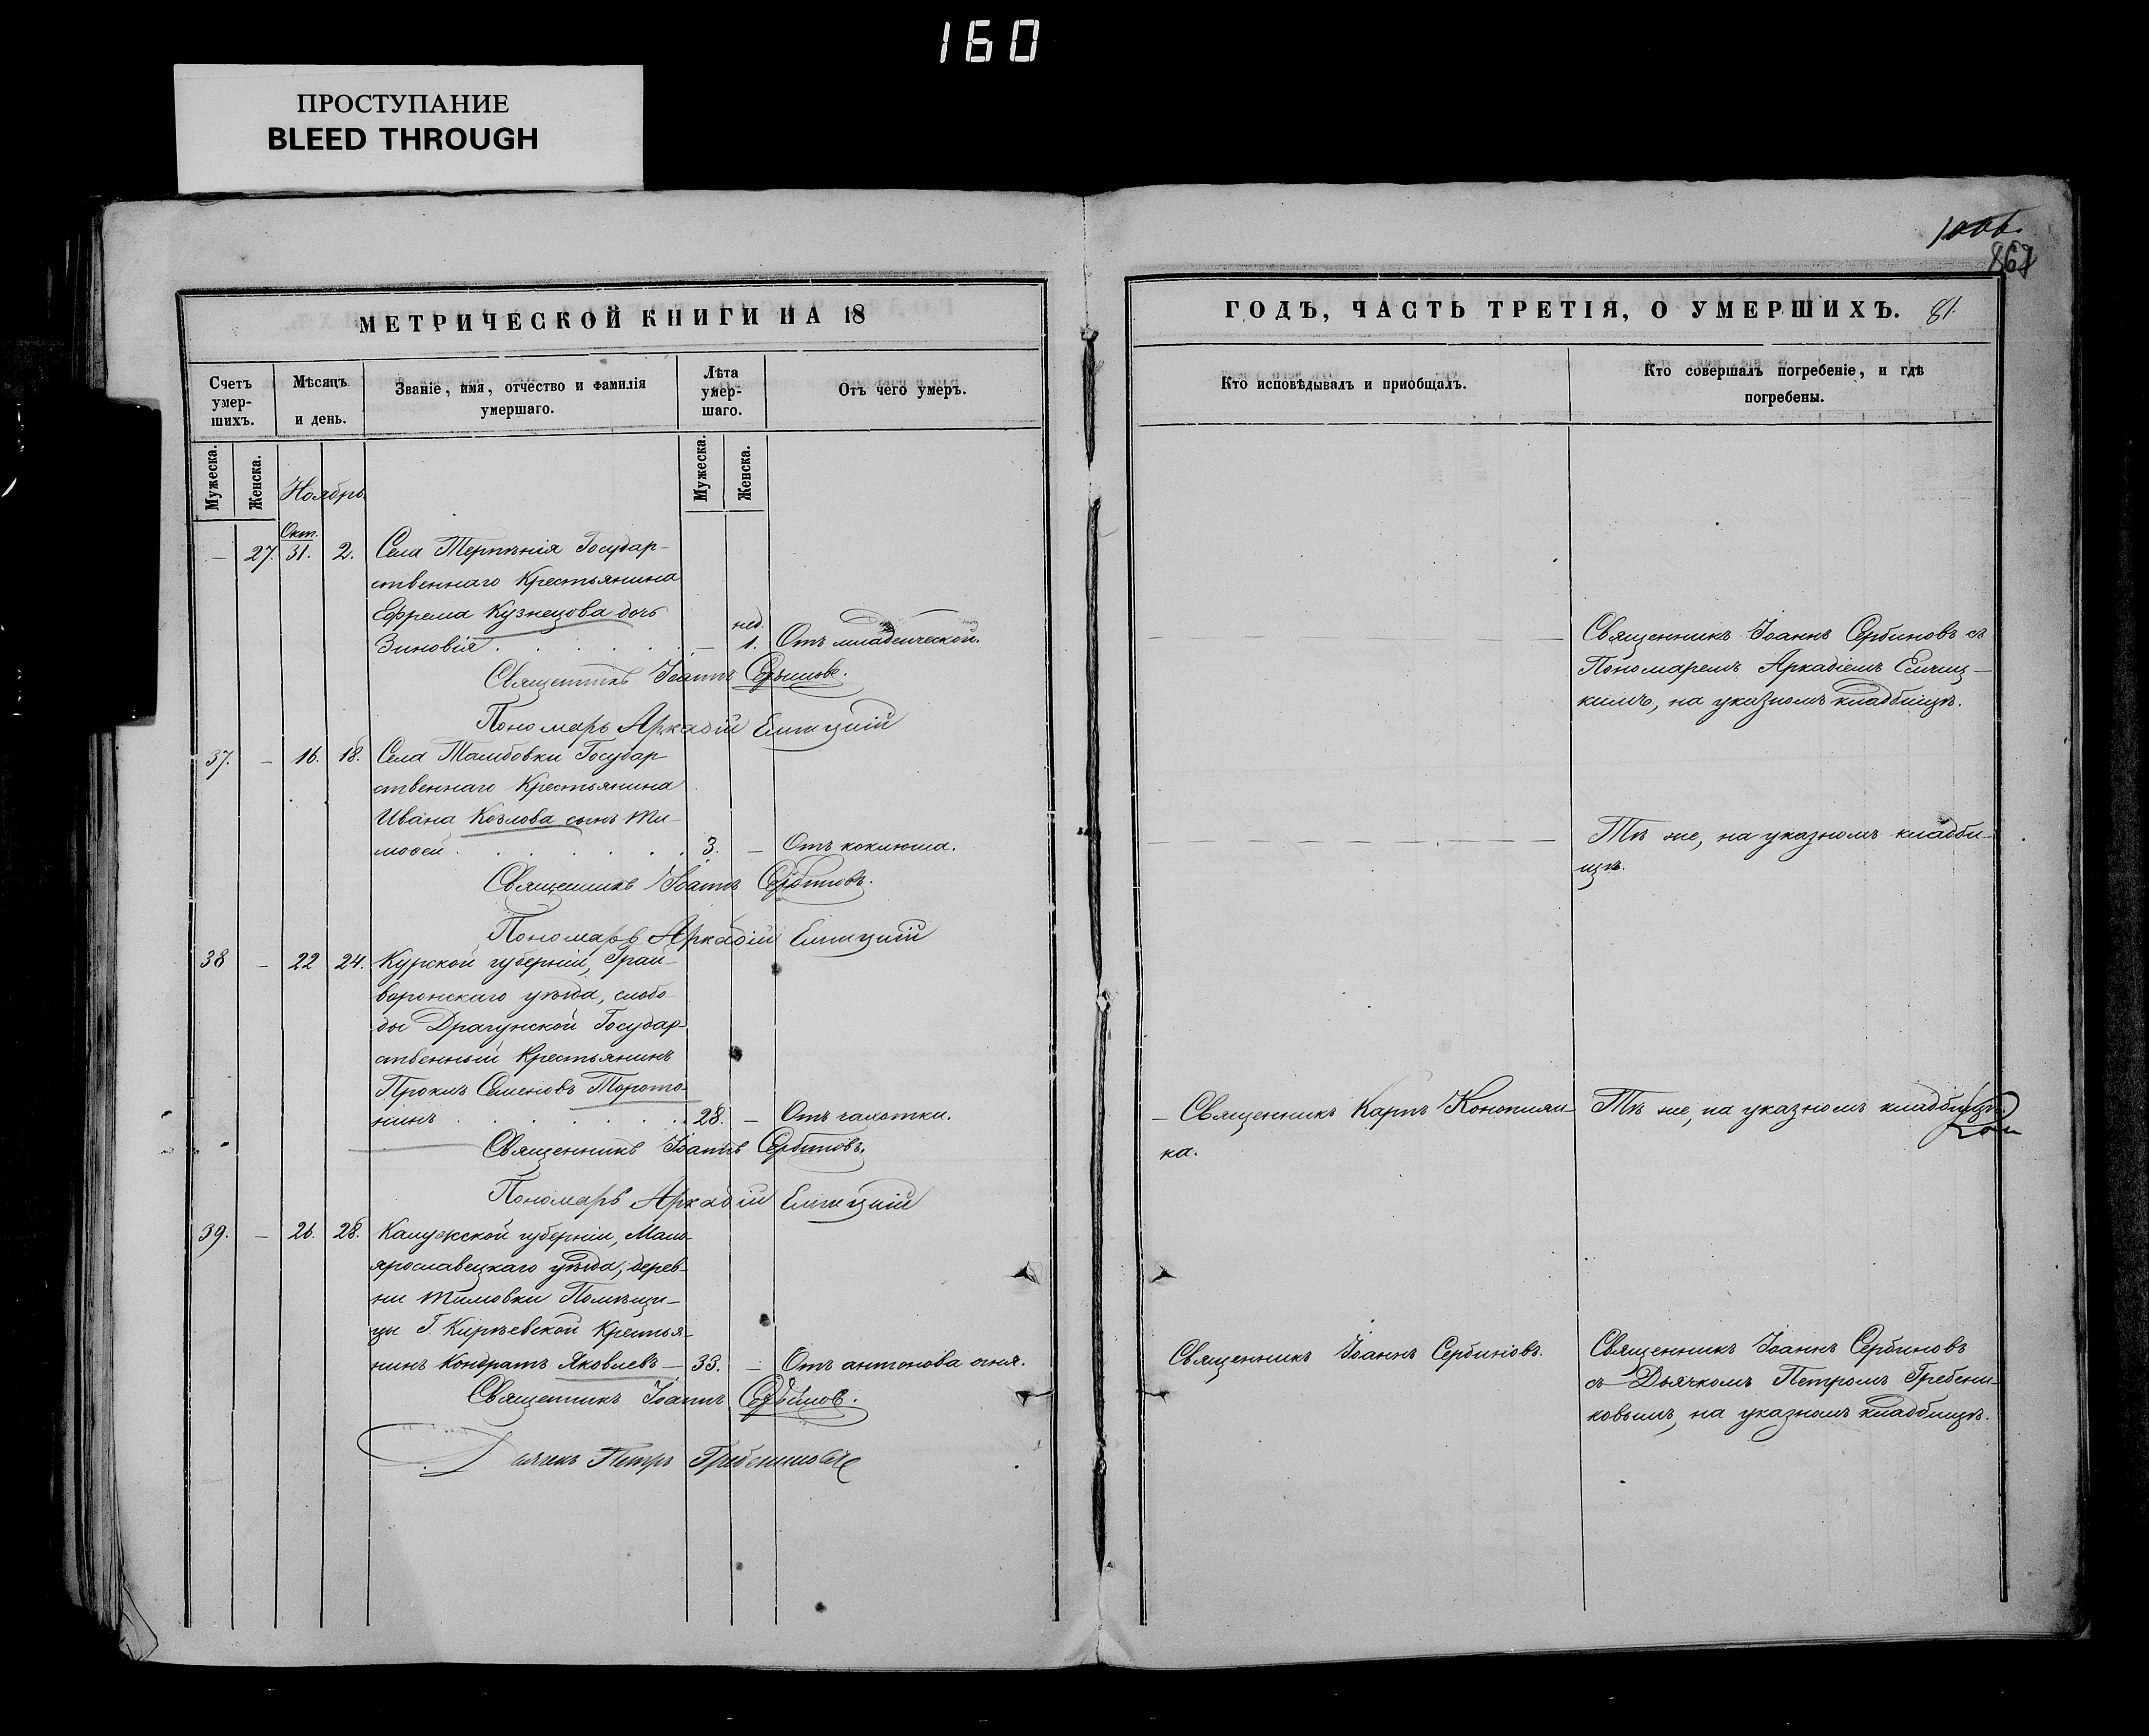 160
ПРОСТУПАНИЕ
BLEED THROUGH
867
МЕТРИЧЕСКОЙ КНИГИ НА 18
ГОДЪ, ЧАСТЬ ТРЕТІЯ, О УМЕРШИХЪ. 81.
Счетъ умер-шихъ.
Мѣсяцъ и день.
Званіе, имя, отчество и фамилія умершаго.
Лѣта умер-шаго.
Отъ чего умеръ.
Кто исповѣдывалъ и пріобщалъ.
Кто совершалъ погребеніе, и гдѣ погребены.
Мужеска. Женска. Мужеска. Женска.
Ноябрь
Окт.
— 27. 31. 2. Села Терпѣнія Государ-
ственнаго Крестьянина
Ефрема Кузнецова дочь
нед.
Зиновія — 1. Отъ младенческой.
Священникъ Іоаннъ Сербиновъ.
Пономарь Аркадій
Священникъ Іоаннъ Сербиновъ съ
Пономаремъ Аркадіемъ
кимъ, на указномъ кладбищѣ.
37. — 16. 18. Села Тамбовки Государ-
ственнаго Крестьянина
Ивана Козлова сынъ Ти-
моѳей 3. — Отъ коклюша.
Священникъ Іоаннъ Сербиновъ.
Пономарь Аркадій
Тѣ же, на указномъ кладби-
щѣ.
38 — 22 24. Курской губерніи, Грай-
воронскаго уѣзда, слобо-
ды Драгунской Государ-
ственный Крестьянинъ
Проклъ Семеновъ Торото-
нинъ 28. — Отъ чахотки.
Священникъ Іоаннъ Сербиновъ.
Пономарь Аркадій
— Священникъ Карпъ Конопля-
ка.
Тѣ же, на указномъ кладбищѣ.
39. — 26. 28. Калужской губерніи, Мало-
ярославецкаго уѣзда, дерев-
ни Тимовки Помѣщи-
цы Г. Кирѣевской Крестья-
нинъ Кондратъ Яковлевъ — 33. — Отъ антонова огня.
Священникъ Іоаннъ Сербиновъ.
Дьячекъ Петръ Гребенниковъ
Священникъ Іоаннъ Сербиновъ.
Священникъ Іоаннъ Сербиновъ
съ Дьячкомъ Петромъ Гребенни-
ковымъ, на указномъ кладбищѣ.